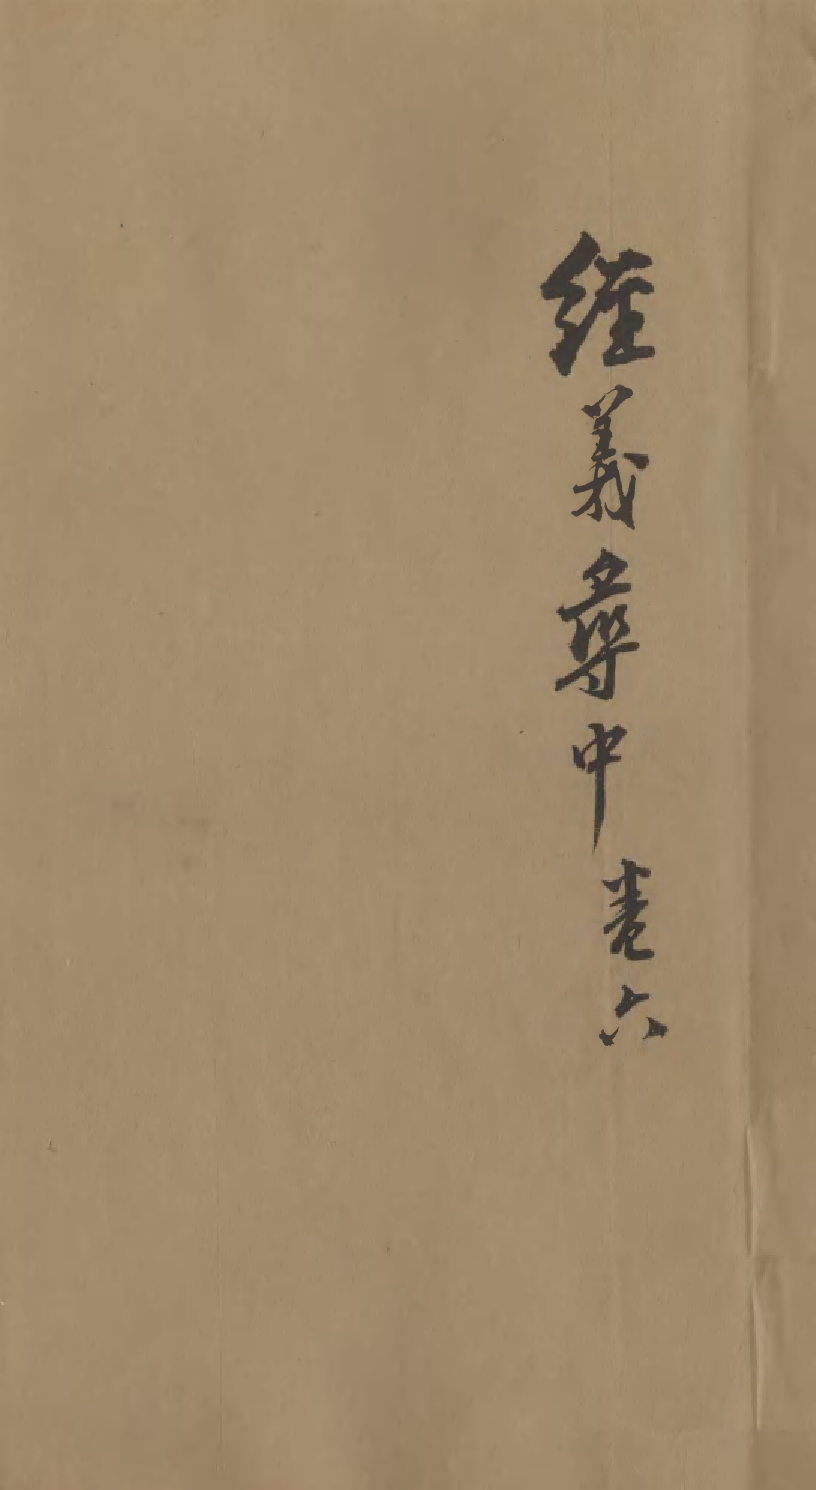 經義尋中 卷六